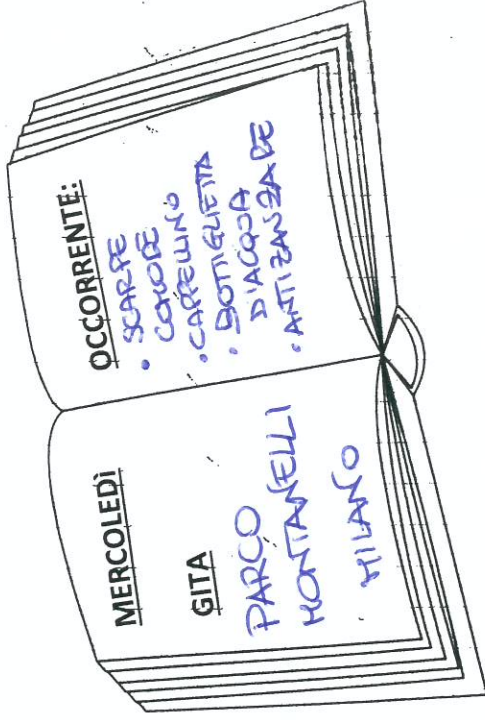 MERCOLEDÌ
GITA
PARCO
MONTANELLI
MILANO
OCCORRENTE:
• SCARPE
COMODE
• CAPPELLINO
• BOTTIGLIETTA
D'ACQUA
• ANTIZANZARE